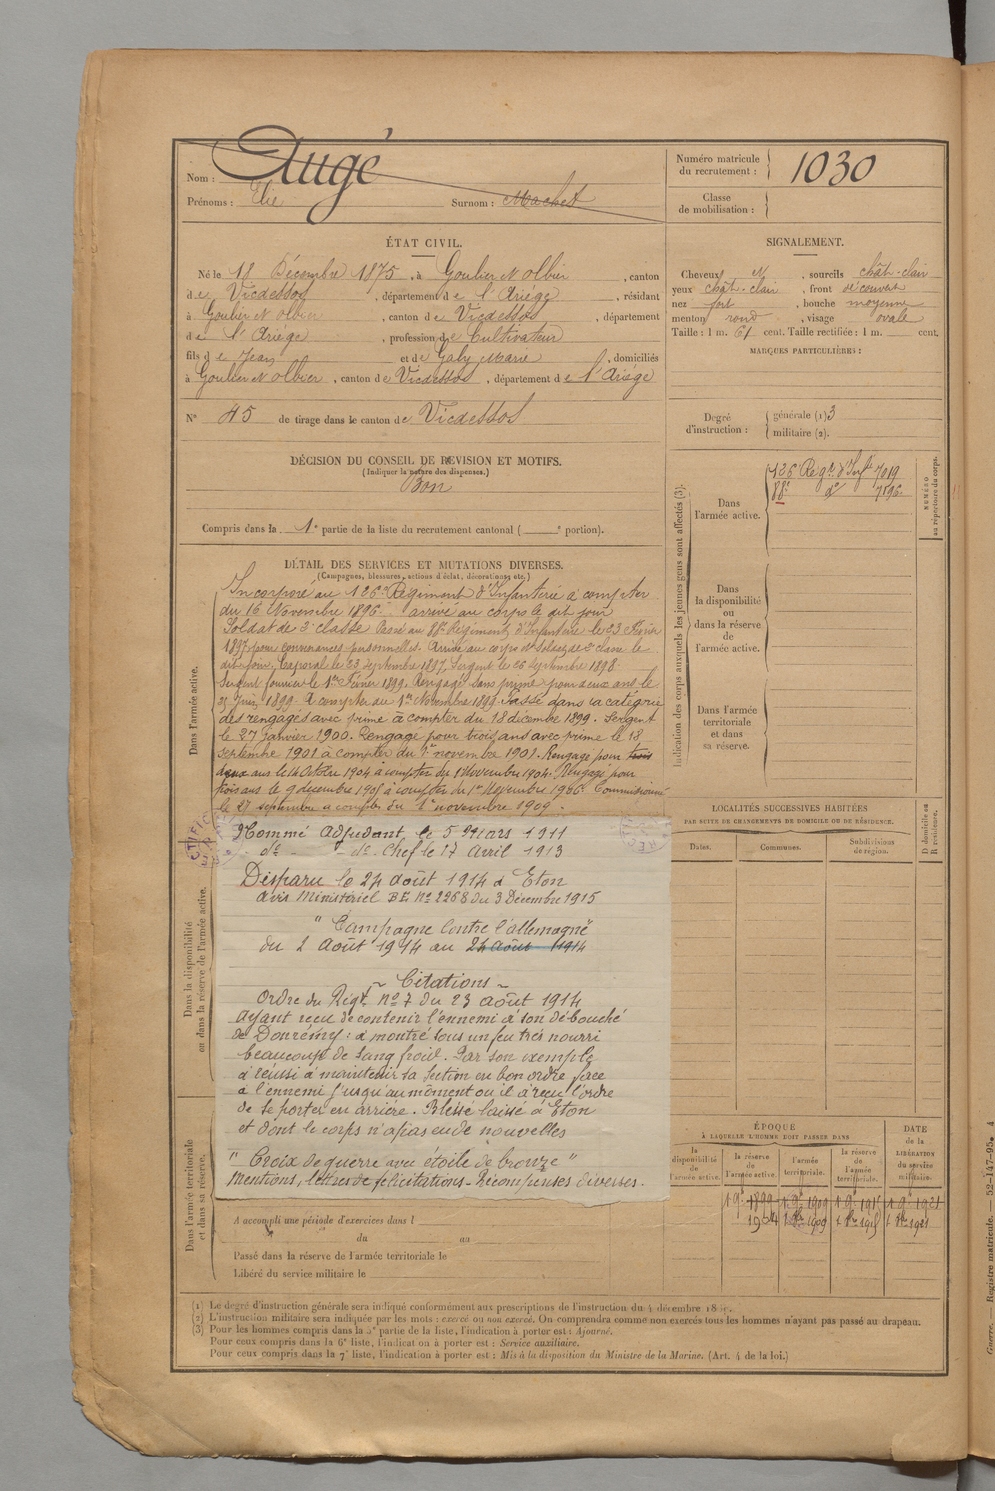 Nom : Augé
Prénoms : Elie Surnom : Machet
Numéro matricule du recrutement : 1030
Classe de mobilisation :
ÉTAT CIVIL.
Né le 18 Décembre 1875, à Goulier et Olbier, canton
de Vicdessos, département de l'Ariége, résidant
à Goulier et Olbier, canton de Vicdessos, département
de l'Ariége, profession de Cultivateur
fils de Jean et de Gaby Marie, domiciliés
à Goulier et Olbier, canton de Vicdessos, département de l'Ariége
N° 45 de tirage dans le canton de Vicdessos
SIGNALEMENT.
Cheveux N, sourcils chât-clair
yeux chât-clair, front découvert
nez fort, bouche moyenne
menton rond, visage ovale
Taille : 1 m. 61 cent. Taille rectifiée : 1 m. cent.
MARQUES PARTICULIÈRES :
Degré d'instruction : générale (1) 3
militaire (2).
DÉCISION DU CONSEIL DE REVISION ET MOTIFS.
(Indiquer la nature des dispenses.)
Bon
Compris dans la 1e partie de la liste du recrutement cantonal ( e portion).
DÉTAIL DES SERVICES ET MUTATIONS DIVERSES.
(Campagnes, blessures, actions d'éclat, décorations, etc.)
Dans l'armée active.
Incorporé au 126e Régiment d'Infanterie à compter
du 16 Novembre 1896. arrivé au corps le dit jour
Soldat de 2e classe Passé au 88e Régiment d'Infanterie le 23 Février
1897 pour convenances personnelles. Arrivé au corps et soldat de 2e classe le
dit jour. Caporal le 23 Septembre 1897, Sergent le 26 septembre 1898.
Sergent fourrier le 1er Février 1899. Rengagé sans prime pour deux ans le
Juin 1899. à compter du 1er Novembre 1899. Passé dans la catégorie
des rengagés avec prime à compter du 18 décembre 1899. Sergent
le 27 Janvier 1900. Rengagé pour trois ans avec prime le 18
septembre 1901 à compter du 1er novembre 1901. Rengagé pour trois
deux ans le 14 Octobre 1904 à compter du 1er Novembre 1904. Rengagé pour
trois ans le 9 décembre 1905 à compter du 1er Novembre 1906. Commissionné
le 27 septembre à compter du 1er novembre 1909.
Nommé Adjudant, le 5 Mars 1911
do - do - Chef le 17 Avril 1913
Disparu le 24 août 1914 à Eton
avis Ministériel BE No 2268 du 3 Décembre 1915
"Campagne contre l'allemagne"
du 2 Août 1914 au 24 août 1914
~ Citations ~
Ordre du Régt. No 7 du 23 août 1914
ayant reçu de contenir l'ennemi à son débouché
de Donrémy : a montré sous un feu très nourri
beaucoup de sang froid. Par son exemple
a réussi à maintenir sa section en bon ordre face
à l'ennemi jusqu'au moment où il a reçu l'ordre
de se porter en arrière. Blessé laissé à Eton
et dont le corps n'a pas eu de nouvelles
"Croix de guerre avec étoile de bronze"
Mentions, lettres de félicitations - Récompenses diverses.
Dans la disponibilité ou dans la réserve de l'armée active.
Dans l'armée territoriale et dans sa réserve.
A accompli une période d'exercices dans l
du au
Passé dans la réserve de l'armée territoriale le
Libéré du service militaire le
Indication des corps auxquels les jeunes gens sont affectés (3).
Dans l'armée active.
126e Régt d'Infie 7019
88e do 7596
NUMÉRO au répertoire du corps.
Dans la disponibilité ou dans la réserve de l'armée active.
Dans l'armée territoriale et dans sa réserve.
LOCALITÉS SUCCESSIVES HABITÉES
PAR SUITE DE CHANGEMENTS DE DOMICILE OU DE RÉSIDENCE.
Dates. Communes. Subdivisions de région. D domicile ou R résidence.
ÉPOQUE
À LAQUELLE L'HOMME DOIT PASSER DANS
DATE de la LIBÉRATION du service militaire.
la disponibilité de l'armée active.
la réserve de l'armée active.
l'armée territoriale.
la réserve de l'armée territoriale.
(1) Le degré d'instruction générale sera indiqué conformément aux prescriptions de l'instruction du 4 décembre
(2) L'instruction militaire sera indiquée par les mots : exercé ou non exercé. On comprendra comme non exercés tous les hommes n'ayant pas passé au drapeau.
(3) Pour les hommes compris dans la 5e partie de la liste, l'indication à porter est : Ajourné.
Pour ceux compris dans la 6e liste, l'indication à porter est : Service auxiliaire.
Pour ceux compris dans la 7e liste, l'indication à porter est : Mis à la disposition du Ministre de la Marine. (Art. 4 de la loi.)
Guerre. — Registre matricule. — 52-147-95. 4